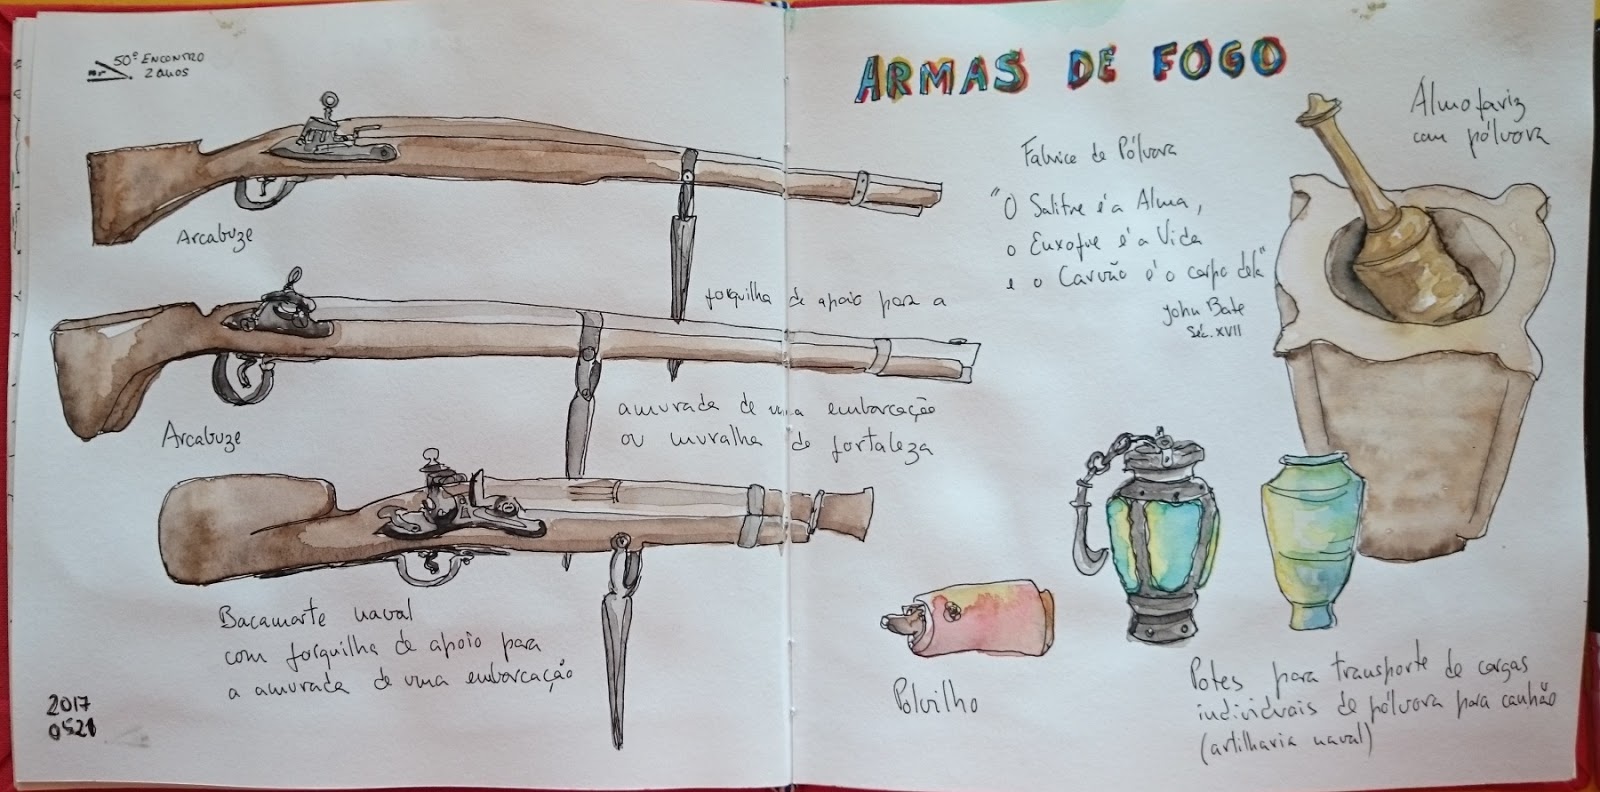 50º ENCONTRO
2 anos
Arcabuze
forquilha de apoio para a
Arcabuze
amurada de uma embarcação
ou muralha de fortaleza
Bacamarte naval
com forquilha de apoio para
a amurada de uma embarcação
2017
0521
ARMAS DE FOGO
Almofariz
com pólvora
Fabrico de Pólvora
"O Salitre é a Alma,
o Enxofre é a Vida
e o Carvão é o corpo dela"
John Bate
Séc. XVII
Polvilho
Potes para transporte de cargas
individuais de pólvora para canhão
(artilharia naval)